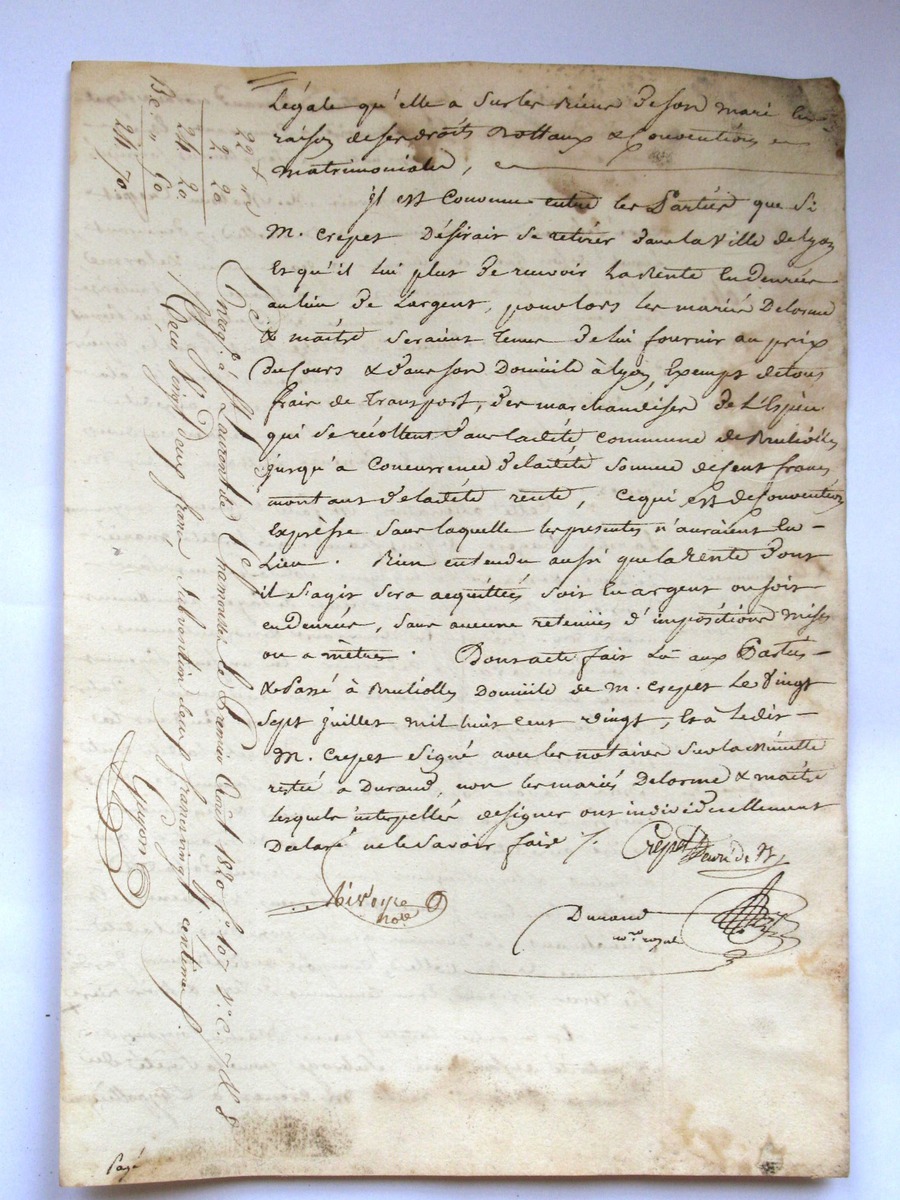 Légale qu'elle a sur les Biens de son mari en
raison de ses droits Dottaux & Conventions
matrimoniales,
Il est Convenu entre les Parties que Si
M. Crepet Désirait Se retirer dans la Ville de Lyon
Et qu'il lui plut De recevoir La Rente En Denrées
au lieu De L'argent, pour lors les mariés Delorme
& maître Seraient Tenus De lui fournir au prix
Du Cours & dans Son Domicile à Lyon, Exempt de tous
frais de Transport, Des marchandises De L'Espèce
qui Se récoltent Dans ladite Commune de Brulioles
jusqu'à Concurrence De ladite Somme de Cent francs
montant De ladite rente, Ce qui Est de Convention
Expresse Sans laquelle les présentes n'auraient Eu
Lieu. Bien entendu aussi que la Rente Dont
il S'agit Sera acquittées Soit En argent ou Soit
en Denrées, Sans aucune retenues d'impositions mises
ou a mètres. Dont acte fait Lû aux Parties
& Passé à Brulioles Domicile de M. Crepet Le Vingt
Sept juillet mil huit Cent vingt, Et a Ledit
M. Crepet Signé avec les notaires Sur la Minutte
restée à Durand, non les mariés Delorme & maître
lesquels interpellés de Signer ont individuellement
Déclaré ne le Savoir faire /.
Crepet
Durand
nre royal
Enreg. à St Laurent de Chamousset le Premier Août 1820 fo 167 Vo C. 7 & 8
Reçu Vingt Deux francs Subvention deux francs vingt centimes
Guyon
22
2. 20
24 20
50
24 70
Payé